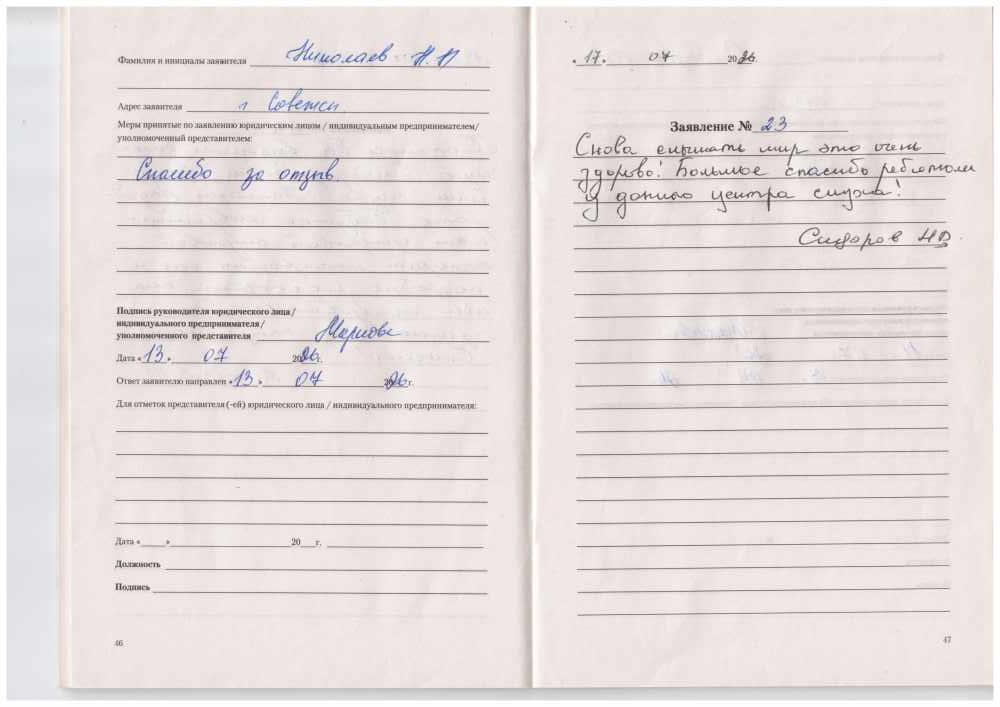 Фамилия и инициалы заявителя Николаев Н.П
Адрес заявителя г Советск
Меры принятые по заявлению юридическим лицом / индивидуальным предпринимателем/
уполномоченный представителем:
Спасибо за отзыв.
Подпись руководителя юридического лица/
индивидуального предпринимателя/
уполномоченного представителя
Дата «13» 07 2026г.
Ответ заявителю направлен «13» 07 2026г.
Для отметок представителя (-ей) юридического лица / индивидуального предпринимателя:
Дата «___»___20___г.
Должность
Подпись
46
«17» 07 2026г.
Заявление № 23
Снова слышать мир это очень
здорово! Большое спасибо
центра слуха!
Сидоров НВ.
47